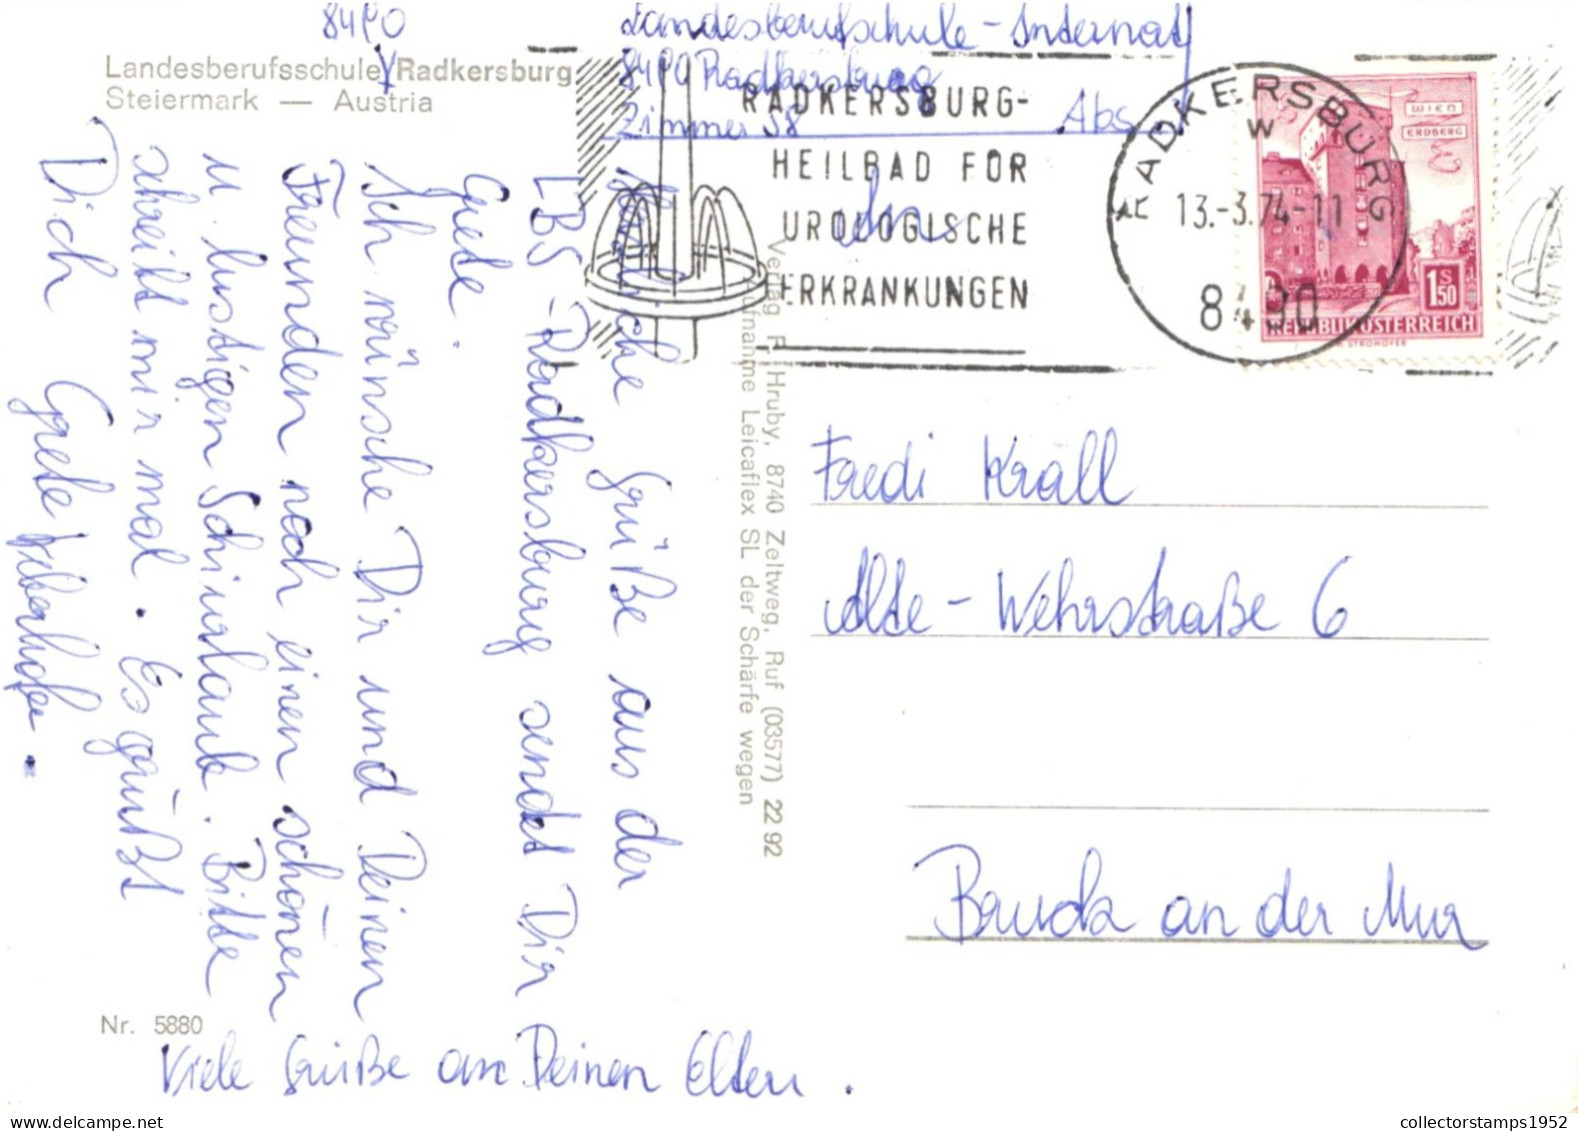 8490
Landesberufsschule Radkersburg
Steiermark — Austria
Landesberufschule - Internat
8490 Radkersburg
Zimmer 58
Abs
RADKERSBURG-
HEILBAD FÜR
UROLOGISCHE
ERKRANKUNGEN
An
RADKERSBURG
W
13.-3.74-11
8490
WIEN
ERDBERG
1 S 50
REPUBLIK ÖSTERREICH
STROHOFER
Herzliche Grüße aus der
LBS - Radkersburg sendet Dir
Grete.
Ich wünsche Dir und Deinen
Freunden noch einen schönen
u. lustigen Schiurlaub. Bitte
schreibt mir mal. Es grüßt
Dich Grete
Viele Grüße an Deinen Eltern.
Nr. 5880
Verlag F. Hruby, 8740 Zeltweg, Ruf (03577) 22 92
Aufnahme Leicaflex SL der Schärfe wegen
Fredi Kräll
Alte - Wehrstraße 6
Bruck an der Mur
collectorstamps1952